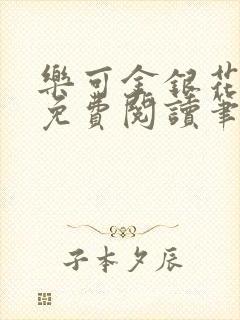 樂可金銀花
免費閱讀筆
子本夕辰